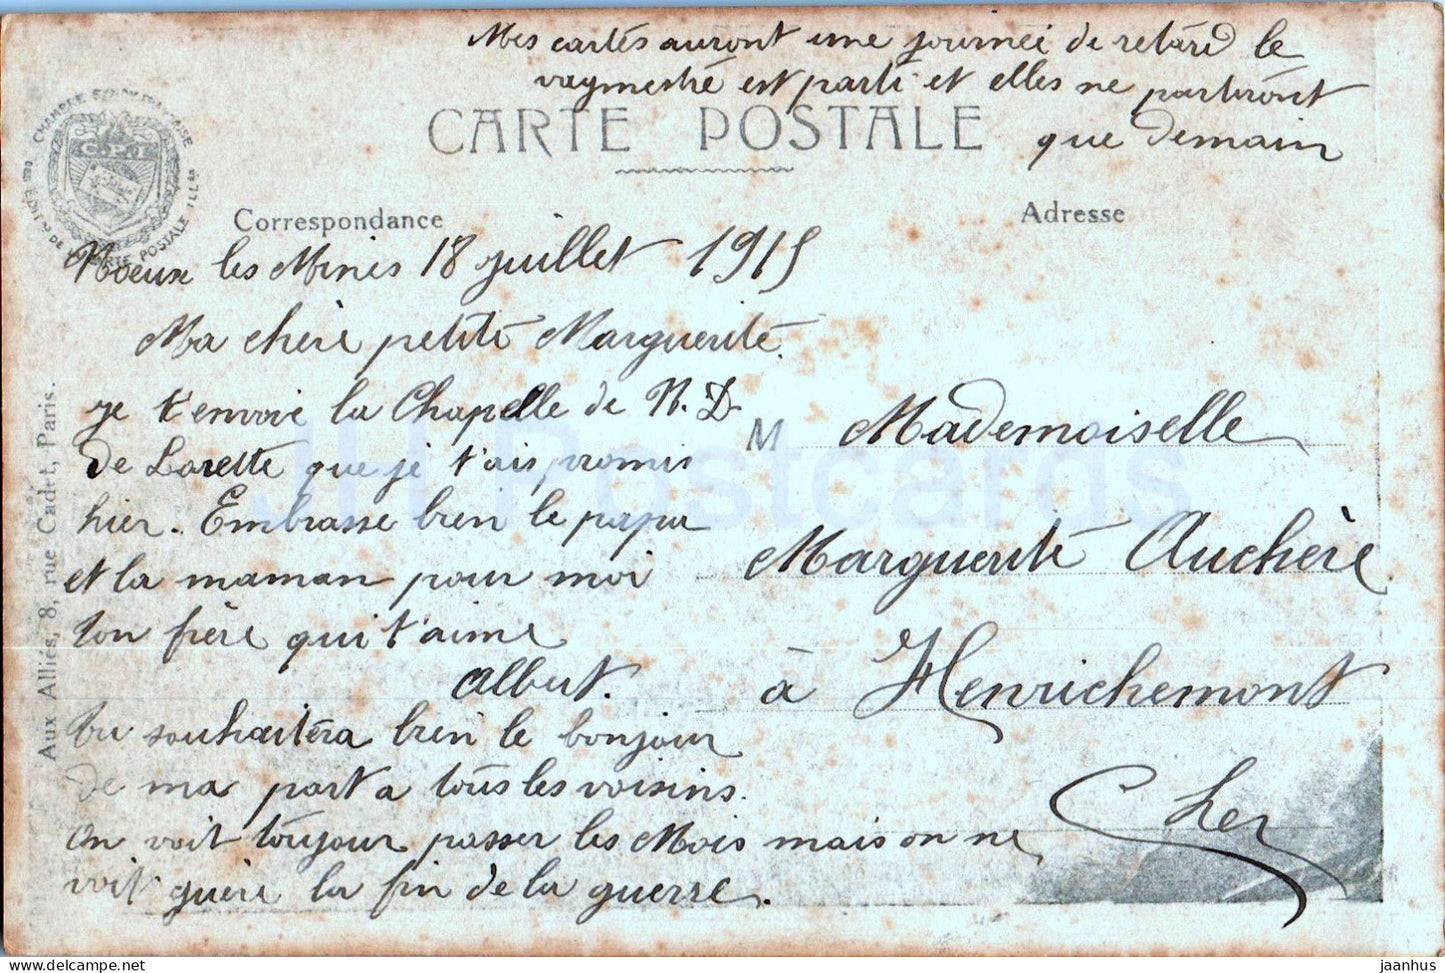 Mes cartes auront une journée de retard le
vaymestre est parti et elles ne partiront
que demain
CARTE POSTALE
CHAMBRE SYNDICALE FRANÇAISE
C.P.I.
CARTE POSTALE ILL
Correspondance
Adresse
Noeux les Mines 18 juillet 1915
Ma chère petite Marguerite
je t'envoie la Chapelle de N. D.
de Lorette que je t'ais promis
hier. Embrasse bien le papa
et la maman pour moi
ton frère qui t'aime
Albert.
tu souhaitera bien le bonjour
de ma part a tous les voisins.
On voit toujour passer les Mois mais on ne
voit guère la fin de la guerre.
M Mademoiselle
Marguerite Auchère
à Henrichemont
Cher
Aux Alliés, 8, rue Cadet, Paris.
JH Postcards
hippostcard.com/store/jaanhus
jaanhus